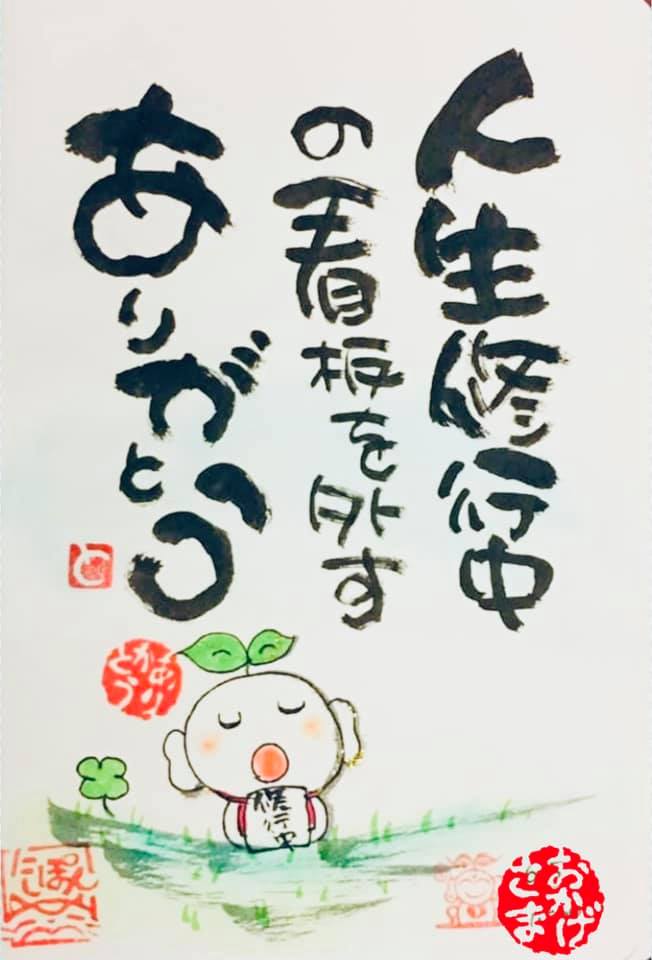 人生修行中
の看板を外す
ありがとう
ありがとう
修行中
にっぽん
おかげ
さま